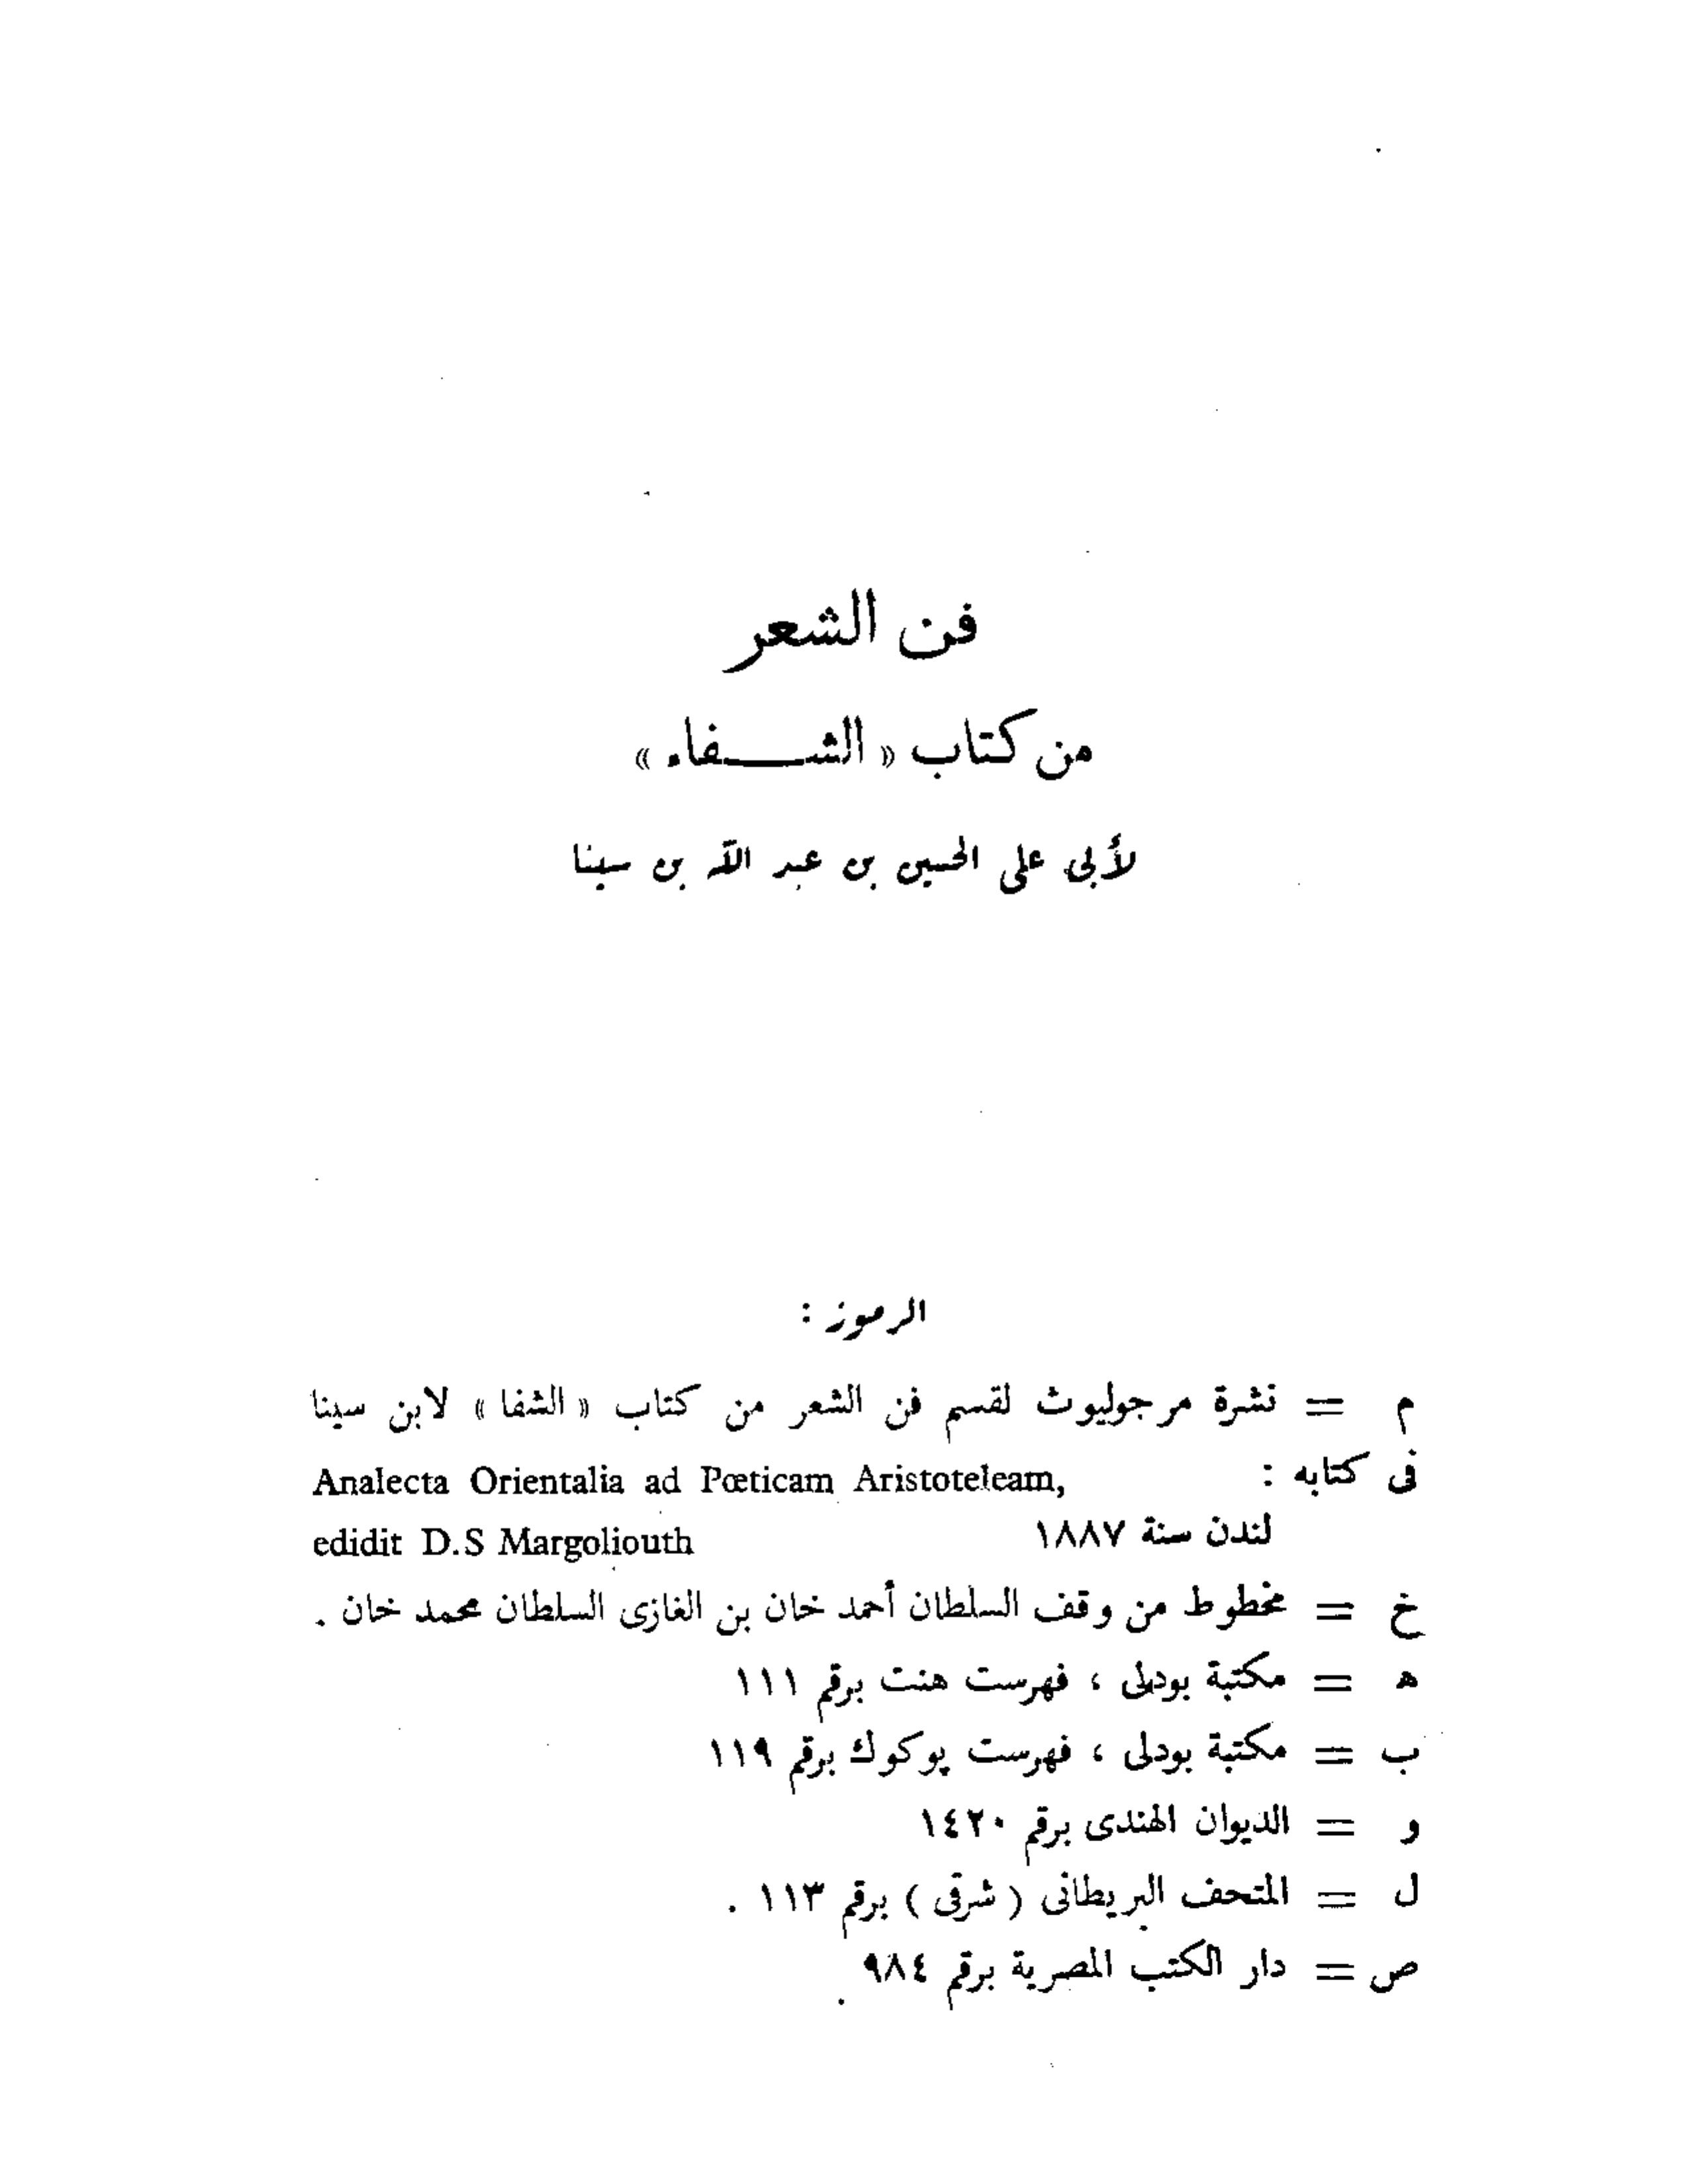 فن الشعر
من كتاب « الشفاء »
لأبى على الحسين بن عبد الله بن سينا
الرموز :
م = نشرة مرجوليوث لقسم فن الشعر من كتاب « الشفا » لابن سينا
فى كتابه : Analecta Orientalia ad Pœticam Aristoteleam,
لندن سنة ١٨٨٧ edidit D.S Margoliouth
خ = مخطوط من وقف السلطان أحمد خان بن الغازى السلطان محمد خان .
ه = مكتبة بودلى ، فهرست هنت برقم ١١١
ب = مكتبة بودلى ، فهرست پوكوك برقم ١١٩
و = الديوان الهندى برقم ١٤٢٠
ل = المتحف البريطانى ( شرقى ) برقم ١١٣ .
ص = دار الكتب المصرية برقم ٩٨٤ .